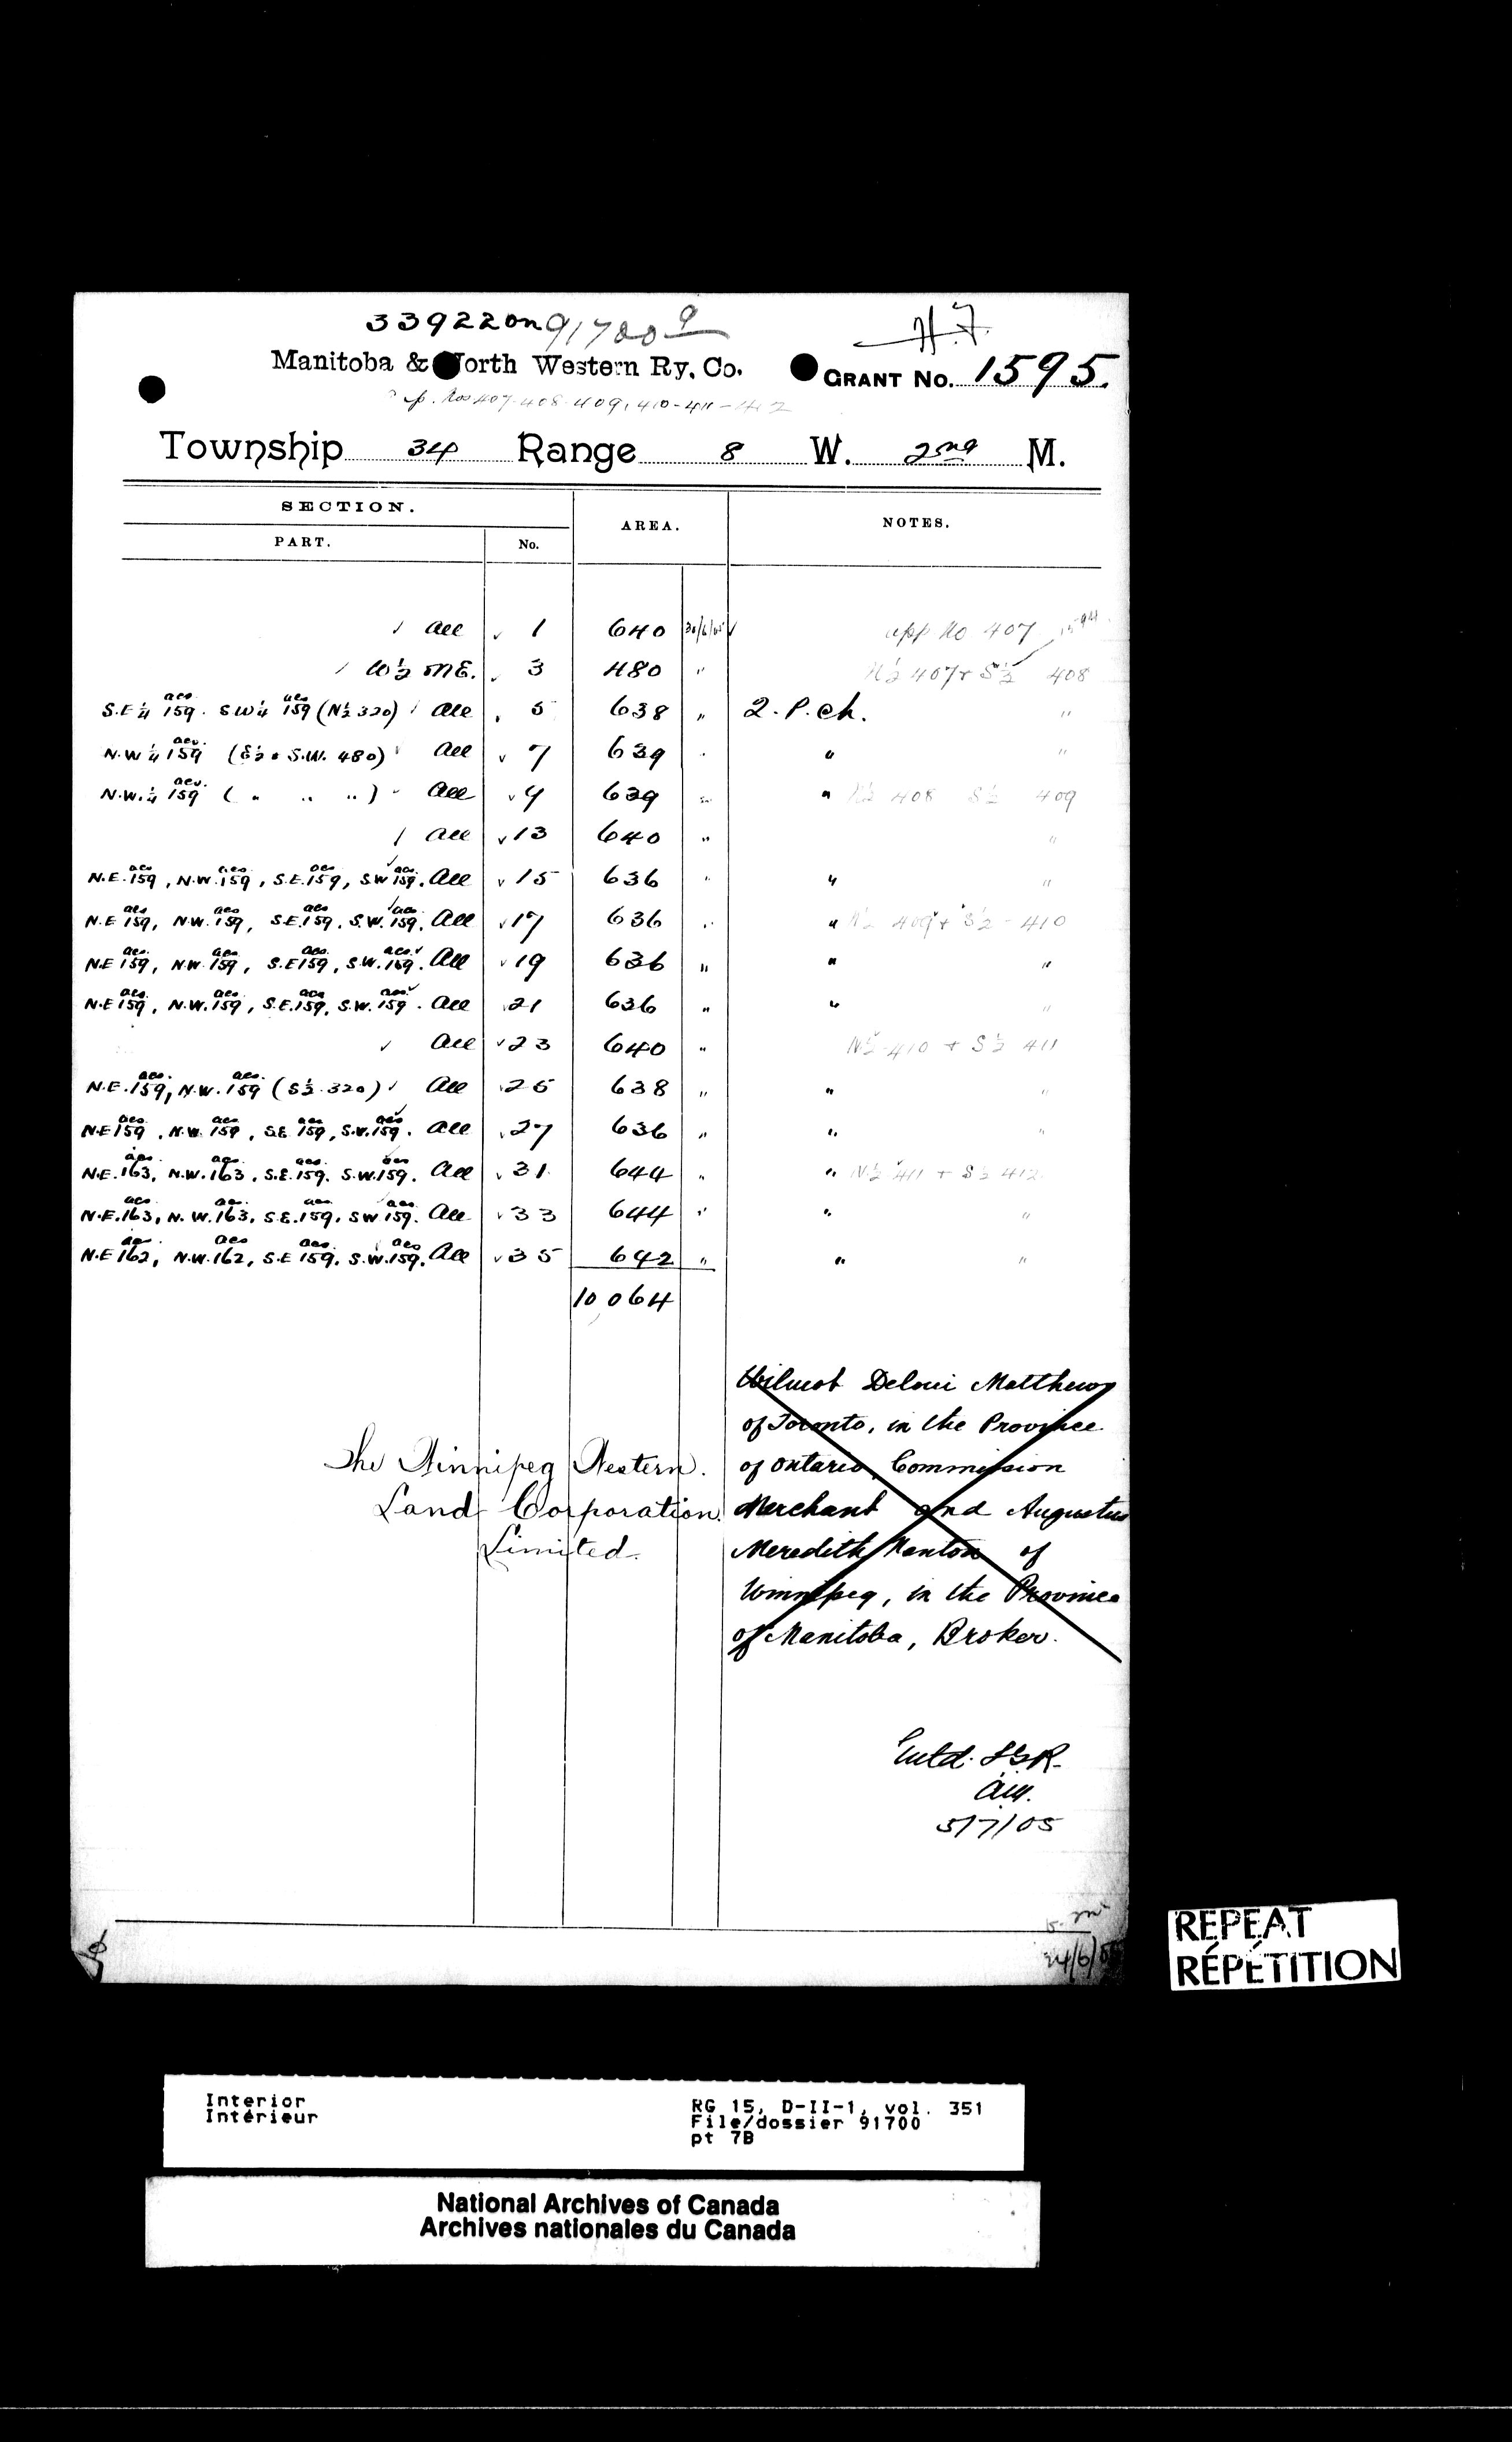 33922 on 91700 9
H.F.
Manitoba & North Western Ry. Co. GRANT No. 1595.
Nos 407-408-409, 410-411-412
Township 34 Range 8 W. 2nd M.
SECTION. AREA. NOTES.
PART. No.
All 1 640 app No 407
W½ NE. 3 480 " N½ 407 + S½ 408
S.E ¼ 159 acs. S.W ¼ 159 acs (N½ 320) All 5 638 " 2. P. ch. "
N.W ¼ 159 acs. (S½ & S.W. 480) All 7 639 " " "
N.W. ¼ 159 acs. ( " " " ) All 9 639 " " N½ 408 S½ 409
All 13 640 " "
N.E. 159 acs, N.W. 159 acs, S.E. 159 acs, S.W 159 acs. All 15 636 " " "
N.E 159 acs, N.W. 159 acs, S.E. 159 acs, S.W. 159 acs. All 17 636 " " N½ 409 + S½ - 410
N.E 159 acs, N.W. 159 acs, S.E 159 acs, S.W. 159 acs. All 19 636 " " "
N.E 159 acs, N.W. 159 acs, S.E. 159 acs, S.W. 159 acs. All 21 636 " " "
All 23 640 " N½ 410 + S½ 411
N.E. 159 acs, N.W. 159 acs (S½ 320) All 25 638 " " "
N.E 159 acs, N.W. 159 acs, S.E. 159 acs, S.W. 159 acs. All 27 636 " " "
N.E. 163 acs, N.W. 163 acs, S.E. 159 acs. S.W. 159 acs. All 31 644 " " N½ 411 + S½ 412
N.E. 163 acs, N.W. 163 acs, S.E. 159 acs, S.W 159 acs. All 33 644 " " "
N.E 162 acs, N.W. 162 acs, S.E 159 acs, S.W. 159 acs. All 35 642 " " "
10,064
Wilmot Deloui Matthews
of Toronto, in the Province
of Ontario, Commission
Merchant and Augustus
Meredith Nanton of
Winnipeg, in the Province
of Manitoba, Broker.
The Winnipeg Western
Land Corporation
Limited.
Entd. L.G.R.
5/7/05
24/6/
REPEAT
RÉPÉTITION
Interior
Intérieur
RG 15, D-II-1, vol. 351
File/dossier 91700
pt 7B
National Archives of Canada
Archives nationales du Canada